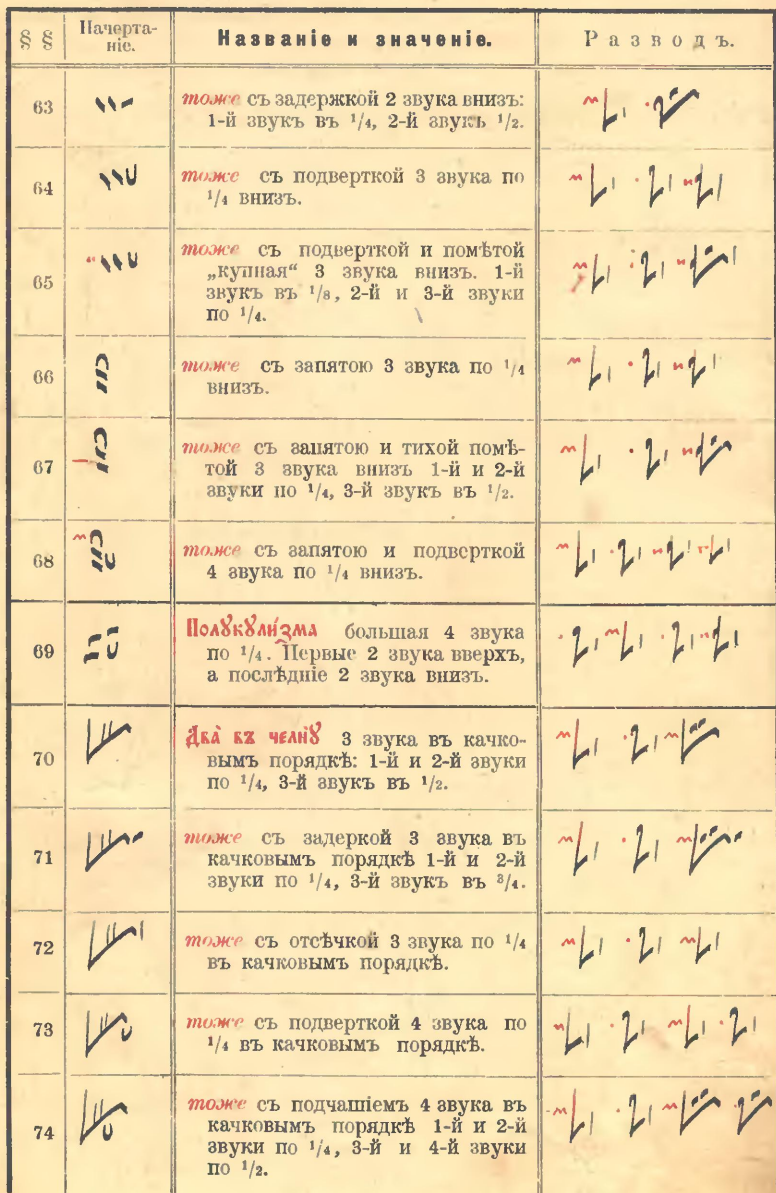 § §
Начерта-
ніе.
Названіе и значеніе.
Разводъ.
63
тоже съ задержкой 2 звука внизъ:
1-й звукъ въ 1/4, 2-й звукъ 1/2.
64
тоже съ подверткой 3 звука по
1/4 внизъ.
65
тоже съ подверткой и помѣтой
„купная“ 3 звука внизъ. 1-й
звукъ въ 1/8, 2-й и 3-й звуки
по 1/4.
66
тоже съ запятою 3 звука по 1/4
внизъ.
67
тоже съ запятою и тихой помѣ-
той 3 звука внизъ 1-й и 2-й
звуки по 1/4, 3-й звукъ въ 1/2.
68
тоже съ запятою и подверткой
4 звука по 1/4 внизъ.
69
Полꙋкꙋли́зма большая 4 звука
по 1/4. Первые 2 звука вверхъ,
а послѣдніе 2 звука внизъ.
70
Два̀ въ челнꙋ̀ 3 звука въ качко-
вымъ порядкѣ: 1-й и 2-й звуки
по 1/4, 3-й звукъ въ 1/2.
71
тоже съ задеркой 3 звука въ
качковымъ порядкѣ 1-й и 2-й
звуки по 1/4, 3-й звукъ въ 3/4.
72
тоже съ отсѣчкой 3 звука по 1/4
въ качковымъ порядкѣ.
73
тоже съ подверткой 4 звука по
1/4 въ качковымъ порядкѣ.
74
тоже съ подчашіемъ 4 звука въ
качковымъ порядкѣ 1-й и 2-й
звуки по 1/4, 3-й и 4-й звуки
по 1/2.